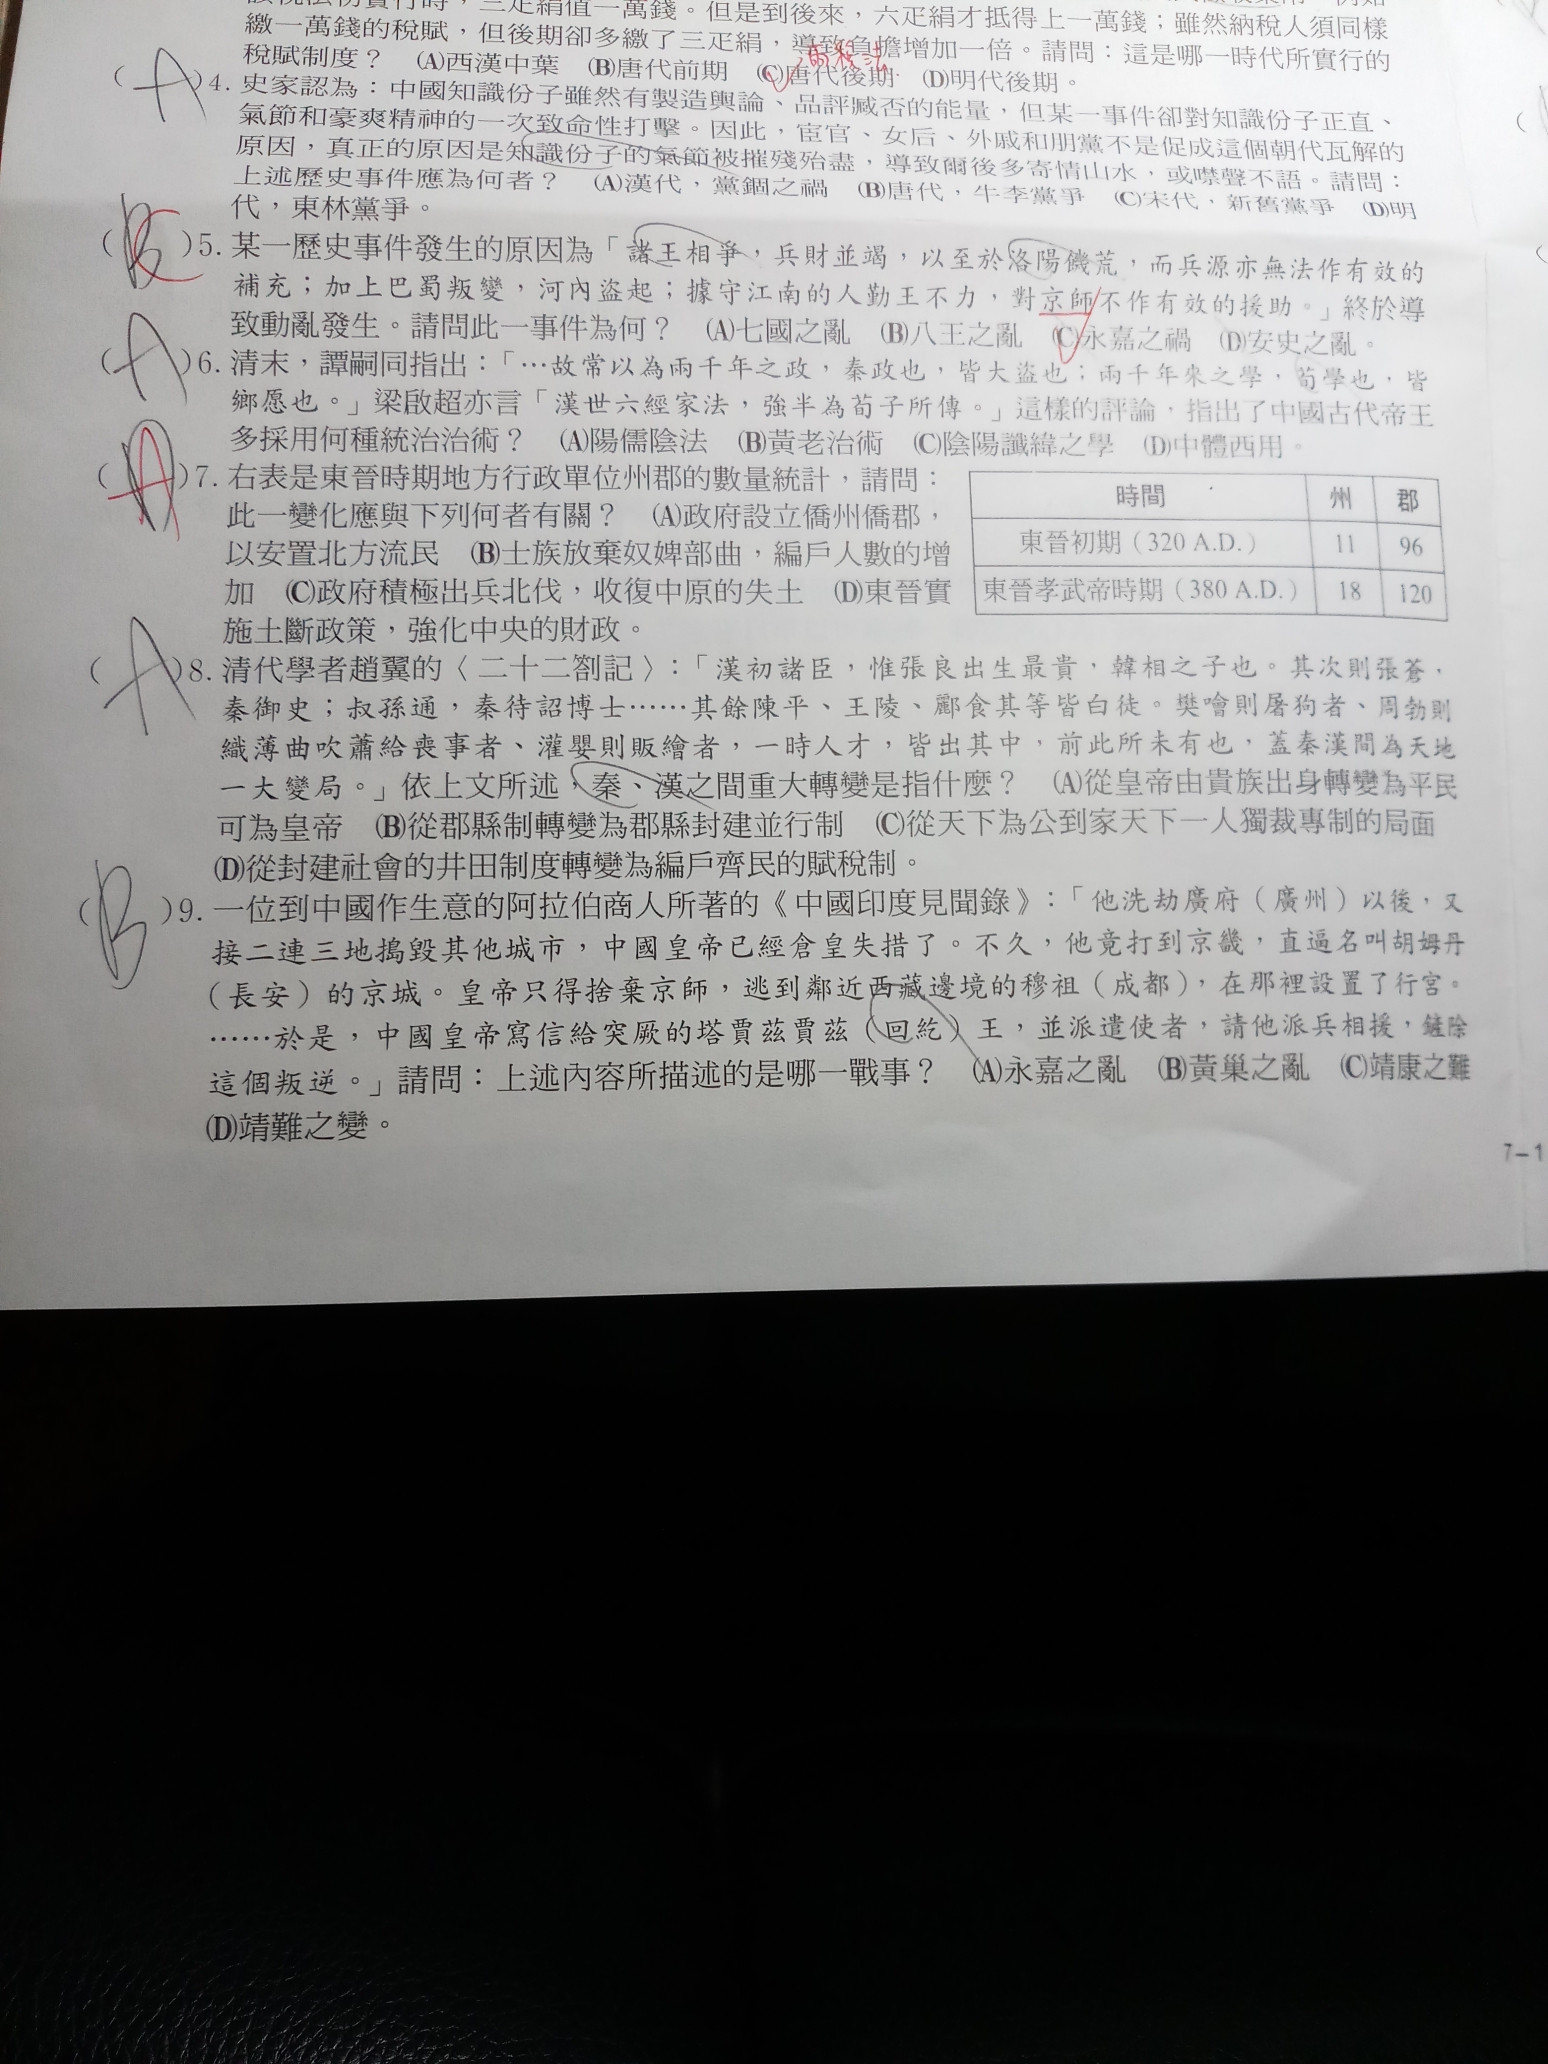 繳一萬錢的稅賦，但後期卻多繳了三疋絹，導致負擔增加一倍。請問：這是哪一時代所實行的
三疋絹值一萬錢。但是到後來，六疋絹才抵得上一萬錢；雖然納稅人須同樣
稅賦制度？ (A)西漢中葉 (B)唐代前期 (C)唐代後期 (D)明代後期。
兩稅法
(A)4. 史家認為：中國知識份子雖然有製造輿論、品評臧否的能量，但某一事件卻對知識份子正直、
氣節和豪爽精神的一次致命性打擊。因此，宦官、女后、外戚和朋黨不是促成這個朝代瓦解的
原因，真正的原因是知識份子的氣節被摧殘殆盡，導致爾後多寄情山水，或噤聲不語。請問：
上述歷史事件應為何者？ (A)漢代，黨錮之禍 (B)唐代，牛李黨爭 (C)宋代，新舊黨爭 (D)明
代，東林黨爭。
(C)5. 某一歷史事件發生的原因為「諸王相爭，兵財並竭，以至於洛陽饑荒，而兵源亦無法作有效的
補充；加上巴蜀叛變，河內盜起；據守江南的人勤王不力，對京師不作有效的援助。」終於導
致動亂發生。請問此一事件為何？ (A)七國之亂 (B)八王之亂 (C)永嘉之禍 (D)安史之亂。
(A)6. 清末，譚嗣同指出：「…故常以為兩千年之政，秦政也，皆大盜也；兩千年來之學，荀學也，皆
鄉愿也。」梁啟超亦言「漢世六經家法，強半為荀子所傳。」這樣的評論，指出了中國古代帝王
多採用何種統治治術？ (A)陽儒陰法 (B)黃老治術 (C)陰陽讖緯之學 (D)中體西用。
(A)7. 右表是東晉時期地方行政單位州郡的數量統計，請問：
此一變化應與下列何者有關？ (A)政府設立僑州僑郡，
以安置北方流民 (B)士族放棄奴婢部曲，編戶人數的增
加 (C)政府積極出兵北伐，收復中原的失土 (D)東晉實
施土斷政策，強化中央的財政。
時間 州 郡
東晉初期（320 A.D.） 11 96
東晉孝武帝時期（380 A.D.） 18 120
(A)8. 清代學者趙翼的〈二十二劄記〉：「漢初諸臣，惟張良出生最貴，韓相之子也。其次則張蒼，
秦御史；叔孫通，秦待詔博士……其餘陳平、王陵、酈食其等皆白徒。樊噲則屠狗者、周勃則
織薄曲吹蕭給喪事者、灌嬰則販繒者，一時人才，皆出其中，前此所未有也，蓋秦漢間為天地
一大變局。」依上文所述，秦、漢之間重大轉變是指什麼？ (A)從皇帝由貴族出身轉變為平民
可為皇帝 (B)從郡縣制轉變為郡縣封建並行制 (C)從天下為公到家天下一人獨裁專制的局面
(D)從封建社會的井田制度轉變為編戶齊民的賦稅制。
(B)9. 一位到中國作生意的阿拉伯商人所著的《中國印度見聞錄》：「他洗劫廣府（廣州）以後，又
接二連三地搗毀其他城市，中國皇帝已經倉皇失措了。不久，他竟打到京畿，直逼名叫胡姆丹
（長安）的京城。皇帝只得捨棄京師，逃到鄰近西藏邊境的穆祖（成都），在那裡設置了行宮。
……於是，中國皇帝寫信給突厥的塔賈茲賈茲（回紇）王，並派遣使者，請他派兵相援，鏟除
這個叛逆。」請問：上述內容所描述的是哪一戰事？ (A)永嘉之亂 (B)黃巢之亂 (C)靖康之難
(D)靖難之變。
7-1